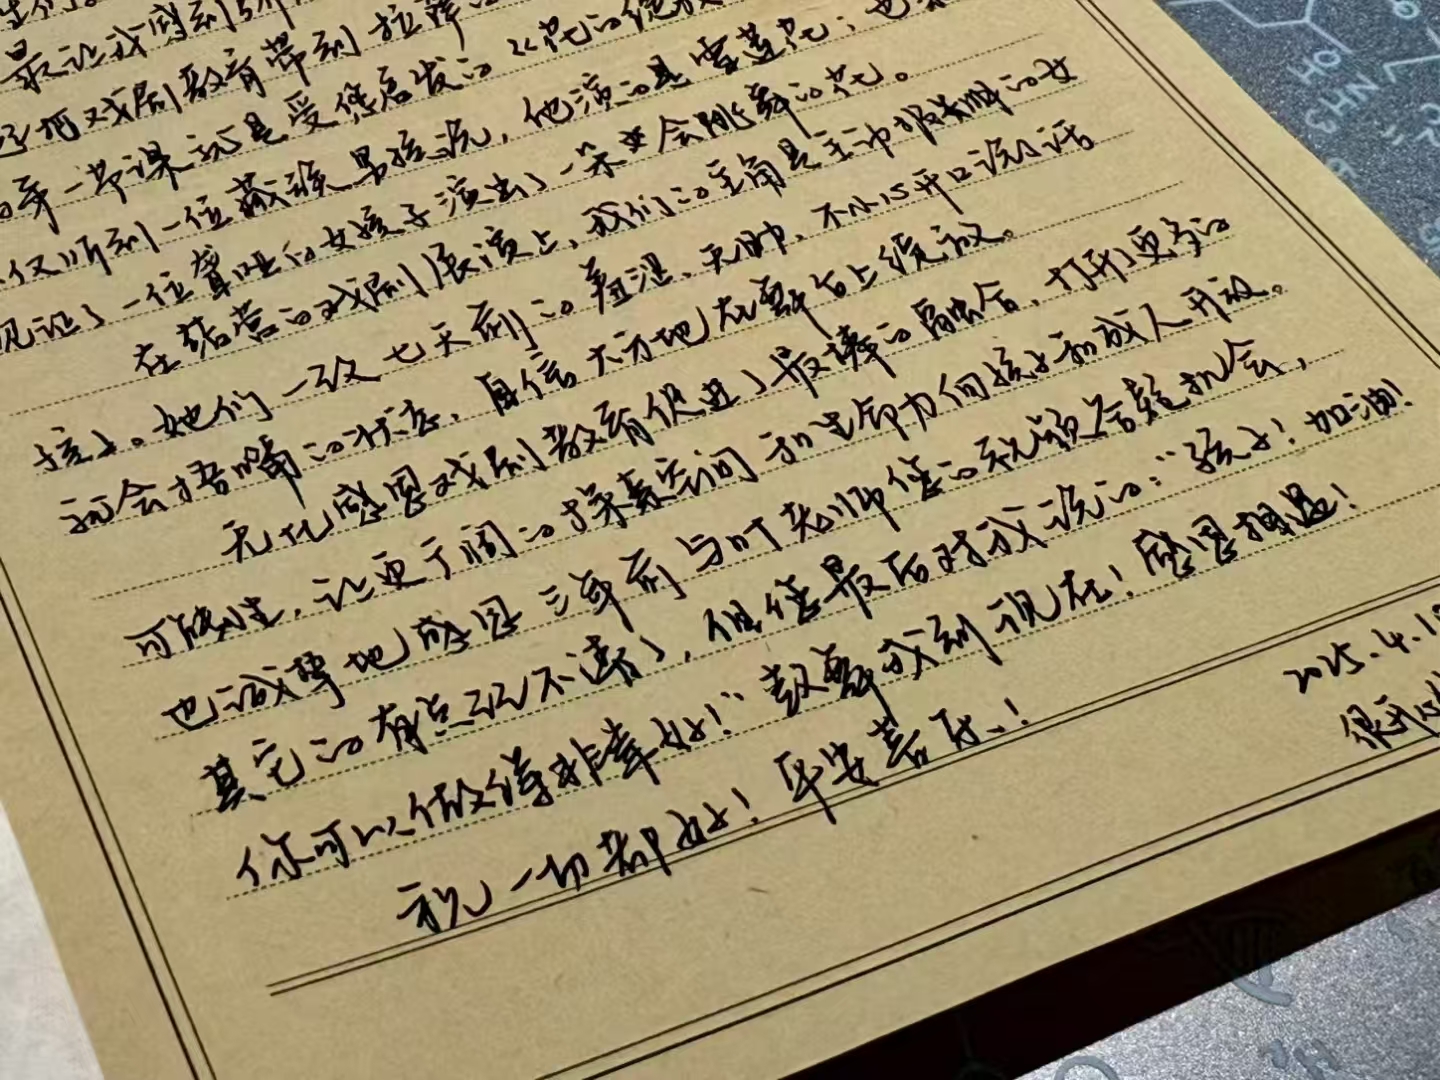 最让我感到
还把戏剧教育带到拉萨
第一节课就是受您启发的《花的绽放
仅听到一位藏族男孩说，他演的是雪莲花；也
见证了一位聋哑的女孩子演出了一朵会跳舞的花。
在结营的戏剧展演上，我们的主角是主动报名的女
孩子。她们一改七天前的羞涩、无助、不小心开口说了话
就会捂嘴的状态，自信大方地在舞台上绽放。
无比感恩戏剧教育促进了最棒的融合，打开更多的
可能性，让更广阔的探索空间和生命力向孩子和成人开放。
也诚挚地感恩三年前与叶老师您的就读答疑机会，
其它的有点记不清了，但您最后对我说的：“孩子！加油！
你可以做得非常好！”鼓舞我到现在！感恩相遇！
祝一切都好！平安喜乐！
2025.4.1
很开心
OH
NH